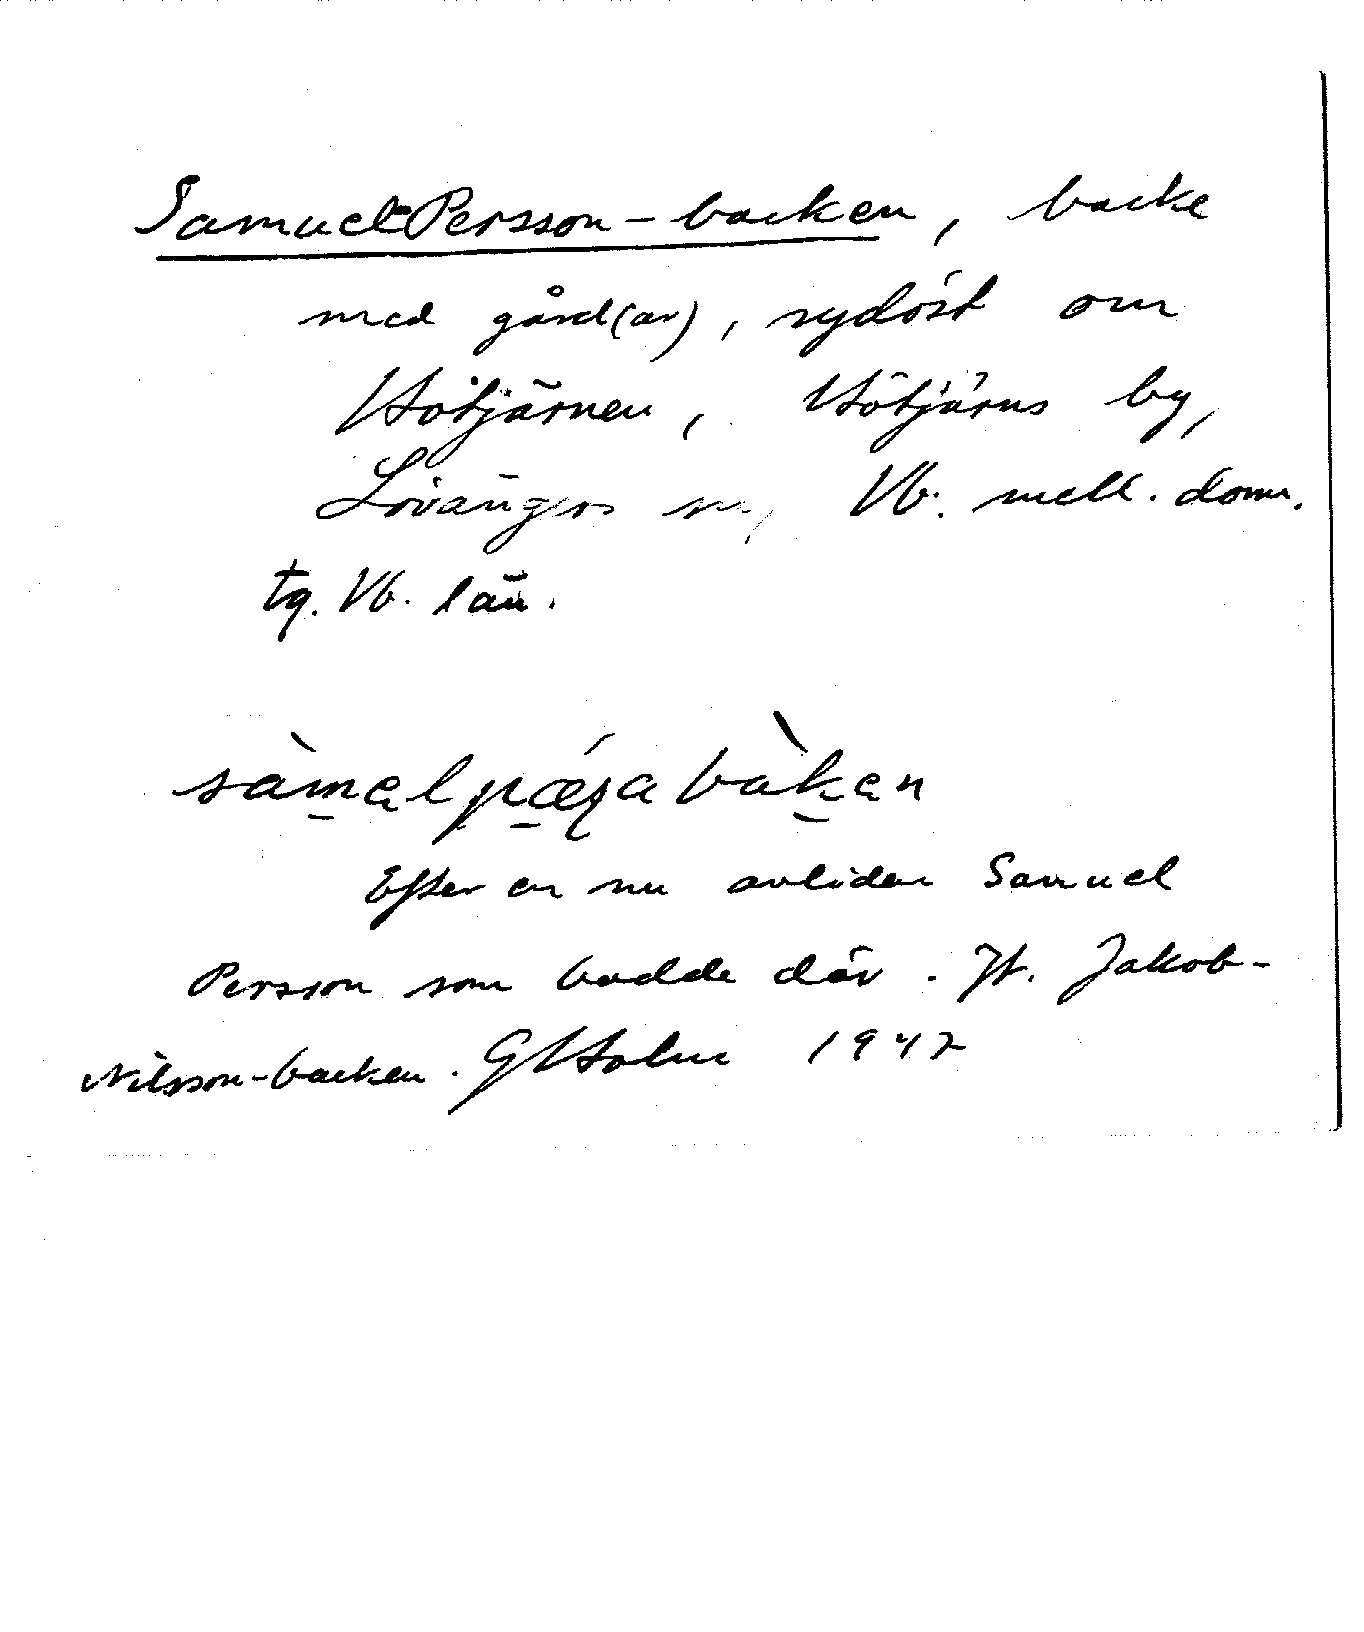 Samuel-Persson-backen, backe
med gård(ar), sydöst om
Hötjärnen, Hötjärns by,
Lövångers sn, Vb. mell. doms.
tg. Vb. län.
sàmɘl pæʂa bàkɘn
Efter en nu avliden Samuel
Persson som bodde där. Jfr. Jakob-
Nilsson-backen. G Holm 1947